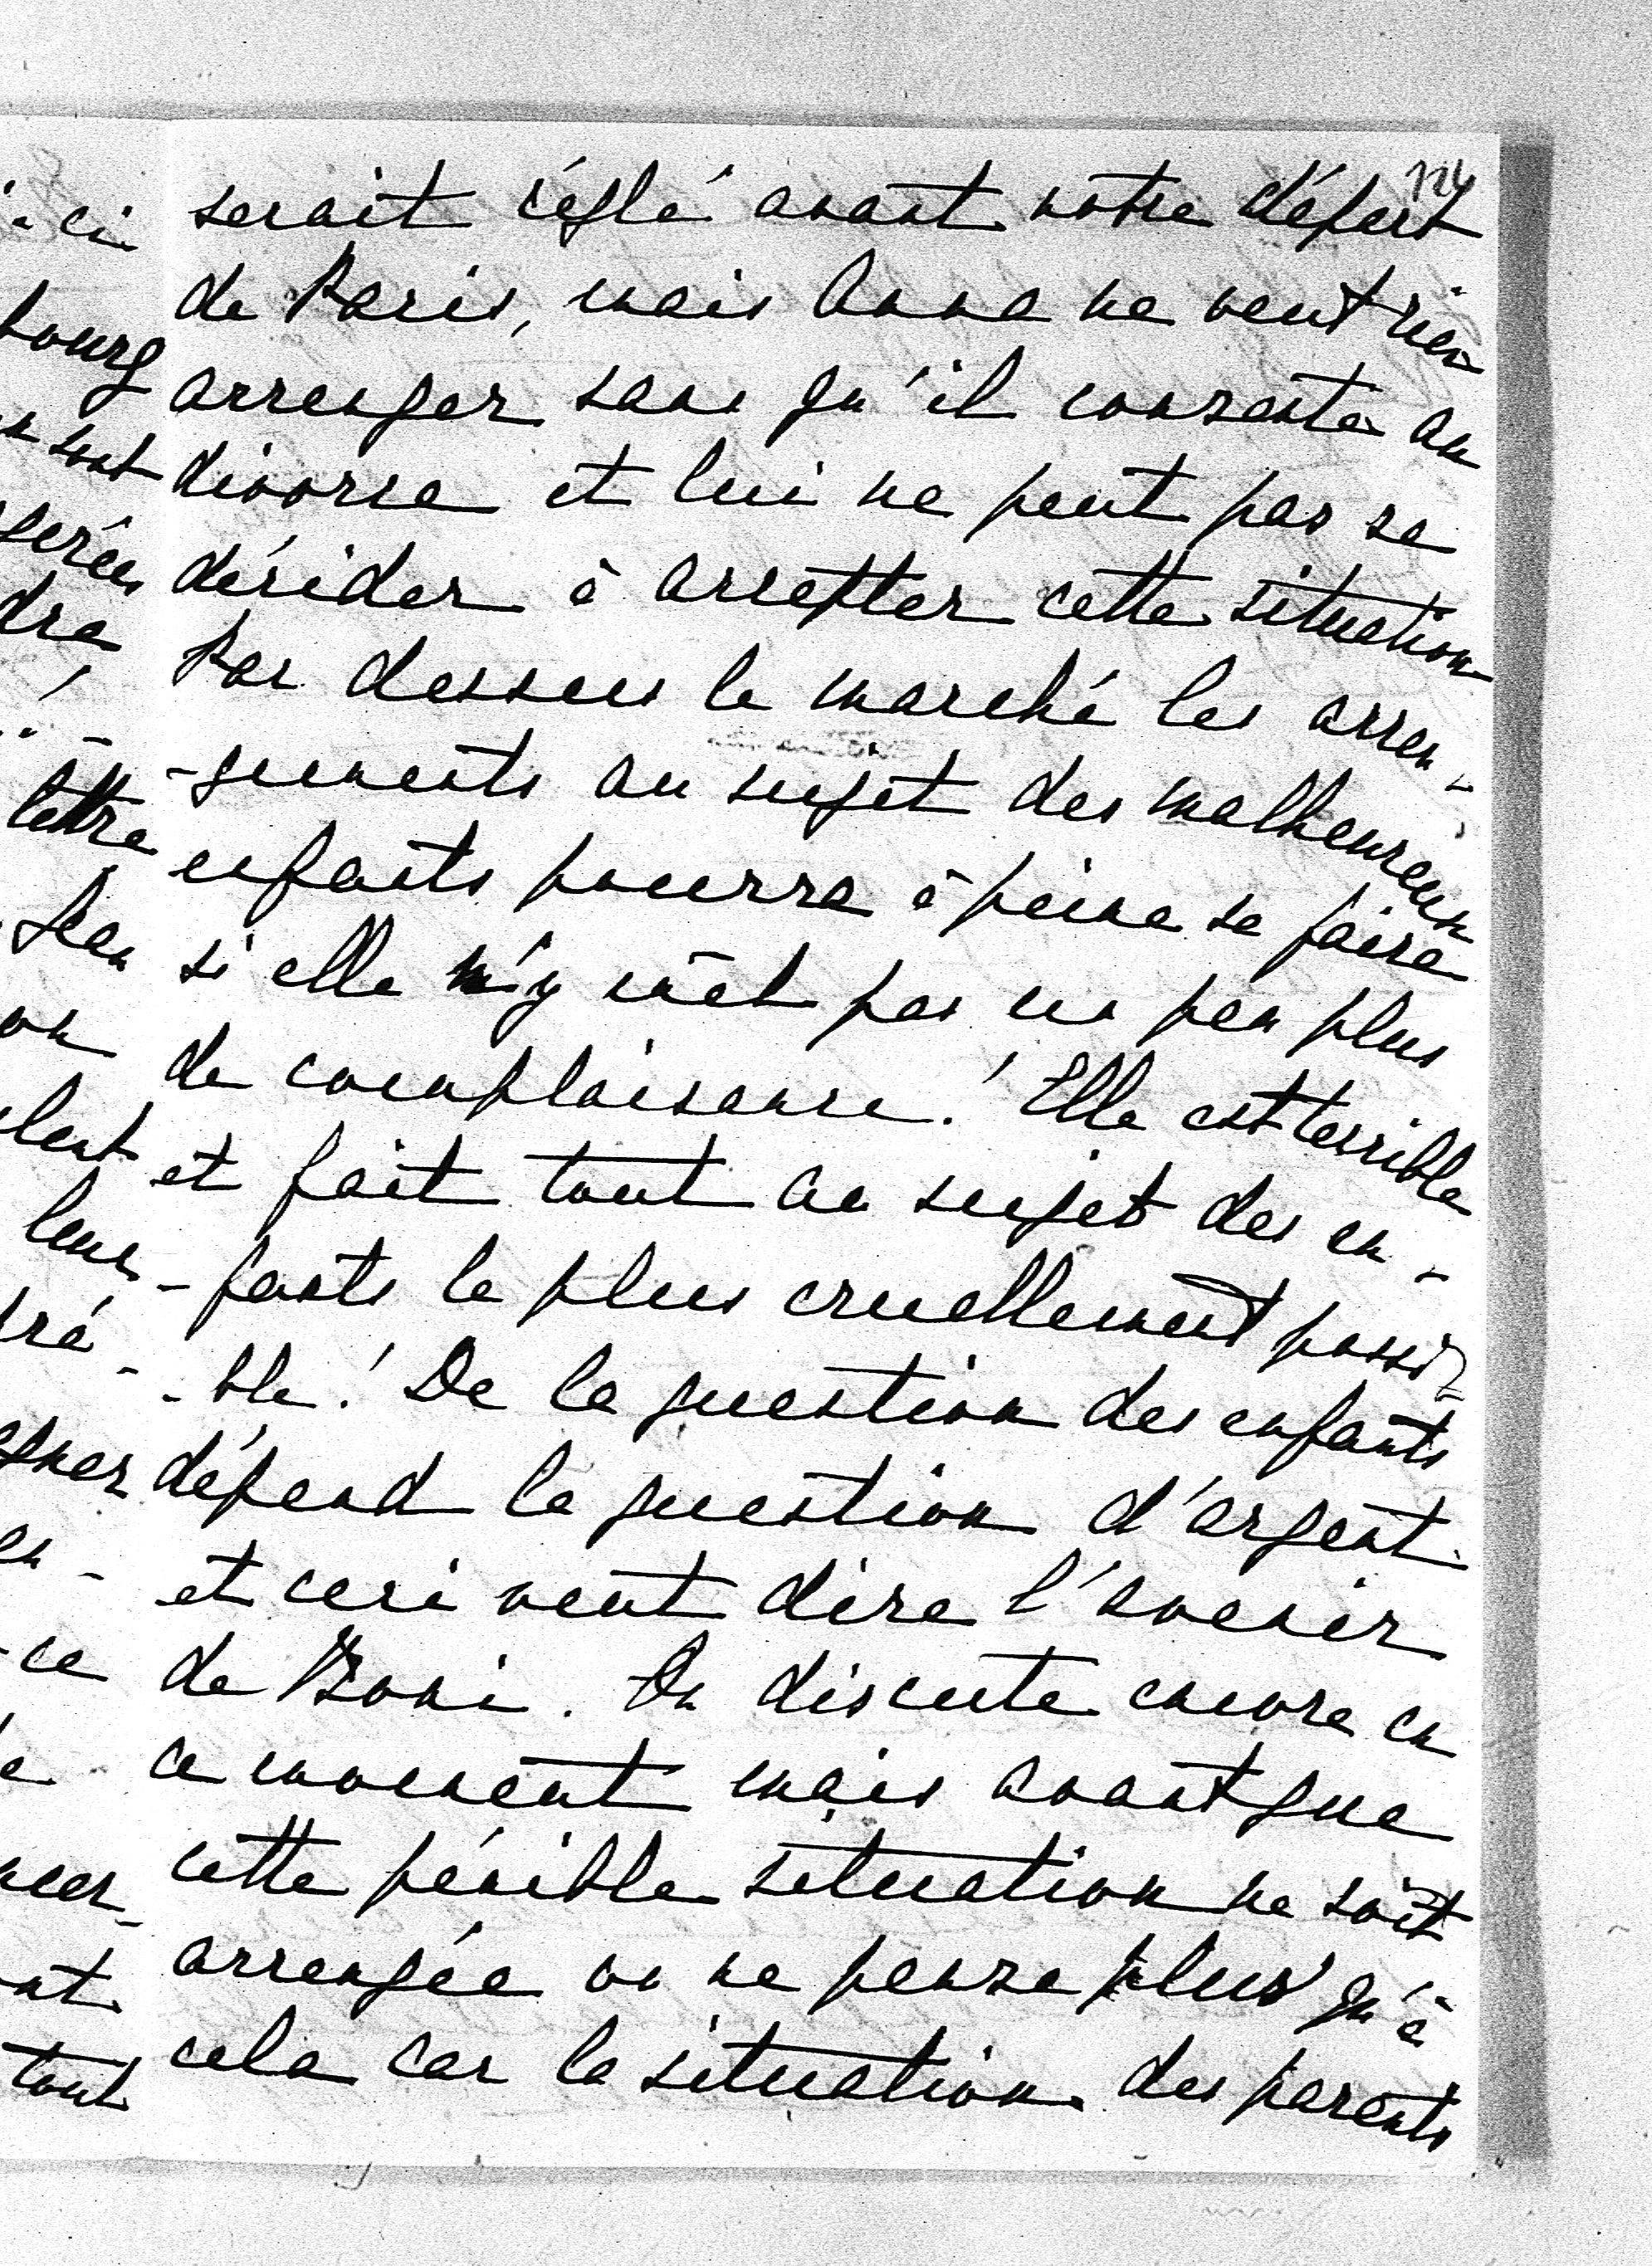 124
serait réglé avant notre départ
de Paris, mais Anna ne veut rien
arranger sans qu'il consente au
divorce et lui ne peut pas se
décider à accepter cette situation
Par dessus le marché les arran-
-gements au sujet des malheureux
enfants pourra à peine se faire
si elle n'y mèt pas un peu plus
de complaisance! Elle est terrible
et fait tout au sujet des en-
-fants le plus cruellement possi-
-ble! De la question des enfants
dépend la question d'argent
et ceci veut dire l'avenir
de Boni. On discute encore en
ce moment mais avant que
cette pénible situation ne soit
arrangée on ne pense plus qu'à
cela car la situation des parents
ci
bourg
sont
dra
lettre
Jean
on
leur
en-
ce
tout